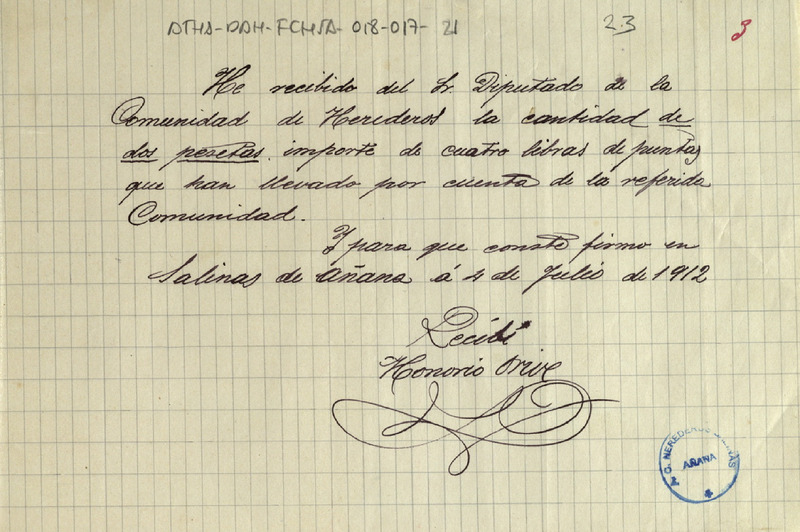 ATHA-DAH-FCHSA-018-017-21
23
3
He recibido del Sr. Diputado de la
Comunidad de Herederos la cantidad de
dos pesetas importe de cuatro libras de puntas
que han llevado por cuenta de la referida
Comunidad.
Y para que conste firmo en
Salinas de Añana á 4 de Julio de 1912
Recibí
Honorio
G. HEREDEROS SALINAS
AÑANA